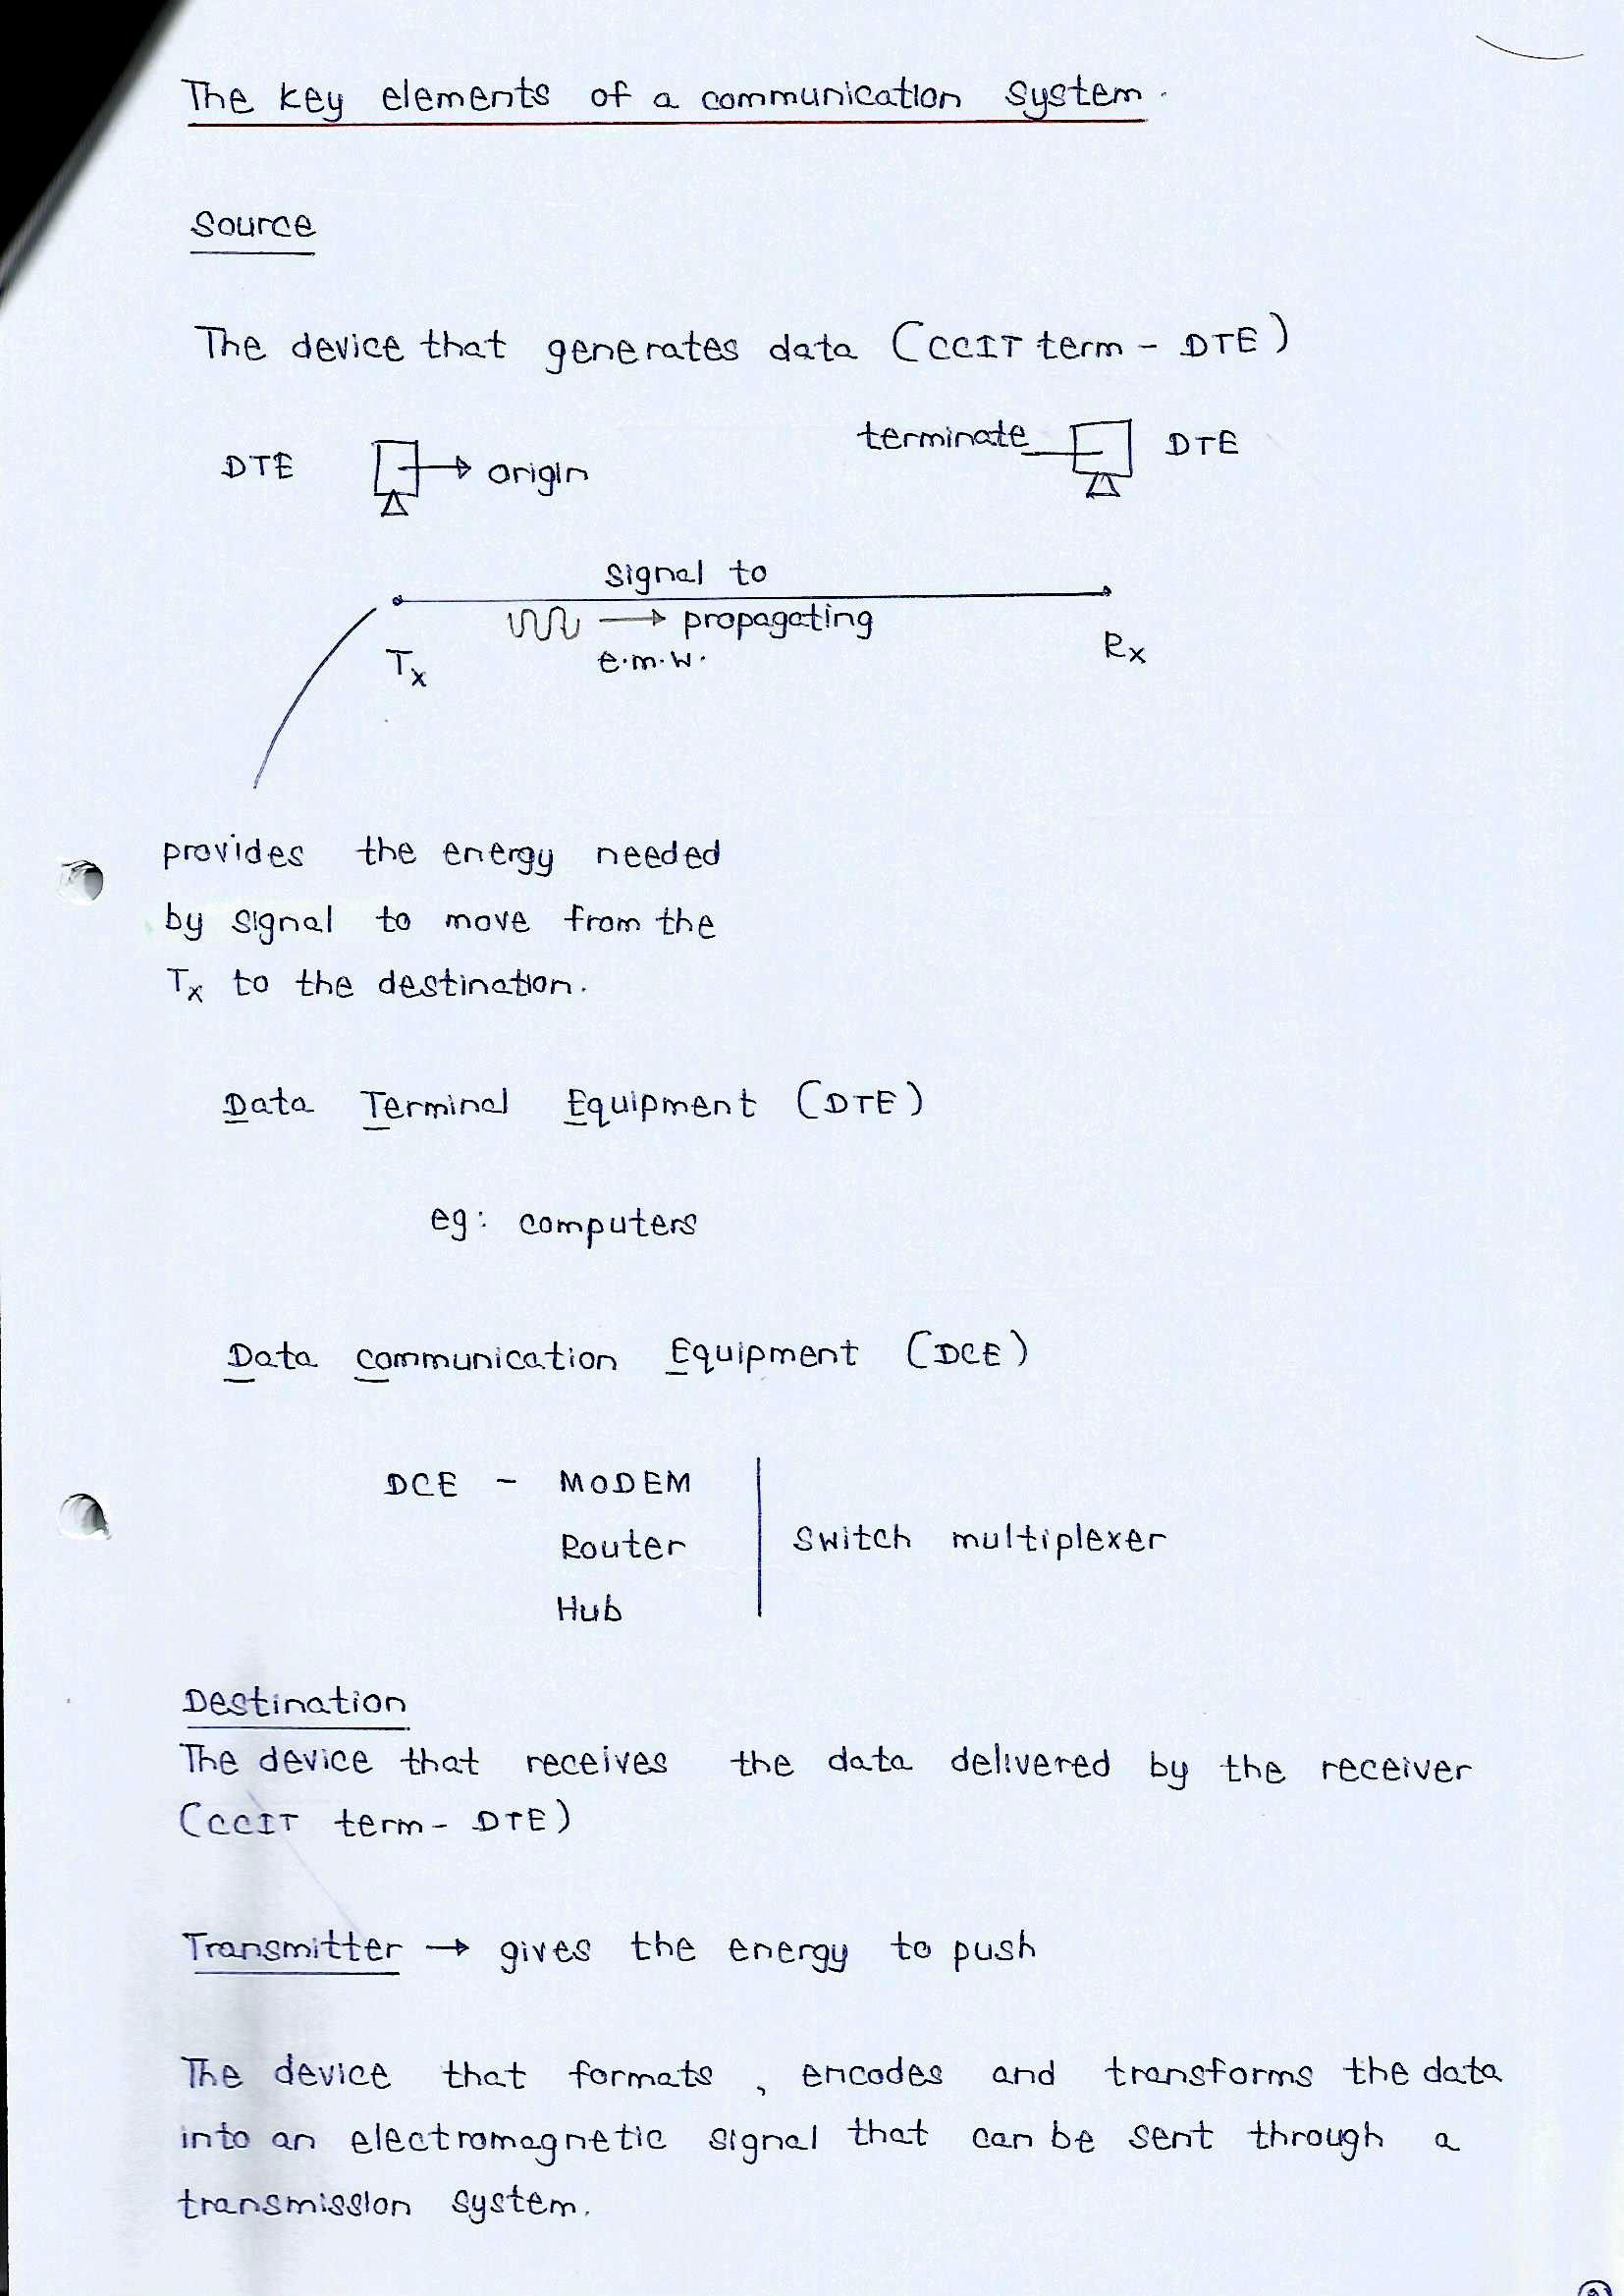 The key elements of a communication system.
Source
The device that generates data (CCIT term - DTE)
DTE → origin
terminate DTE
signal to
→ propagating
e.m.w.
Tx
Rx
provides the energy needed
by signal to move from the
Tx to the destination.
Data Terminal Equipment (DTE)
eg: computers
Data communication Equipment (DCE)
DCE - MODEM
Router
Hub
Switch multiplexer
Destination
The device that receives the data delivered by the receiver
(CCIT term - DTE)
Transmitter → gives the energy to push
The device that formats, encodes and transforms the data
into an electromagnetic signal that can be sent through a
transmission system.